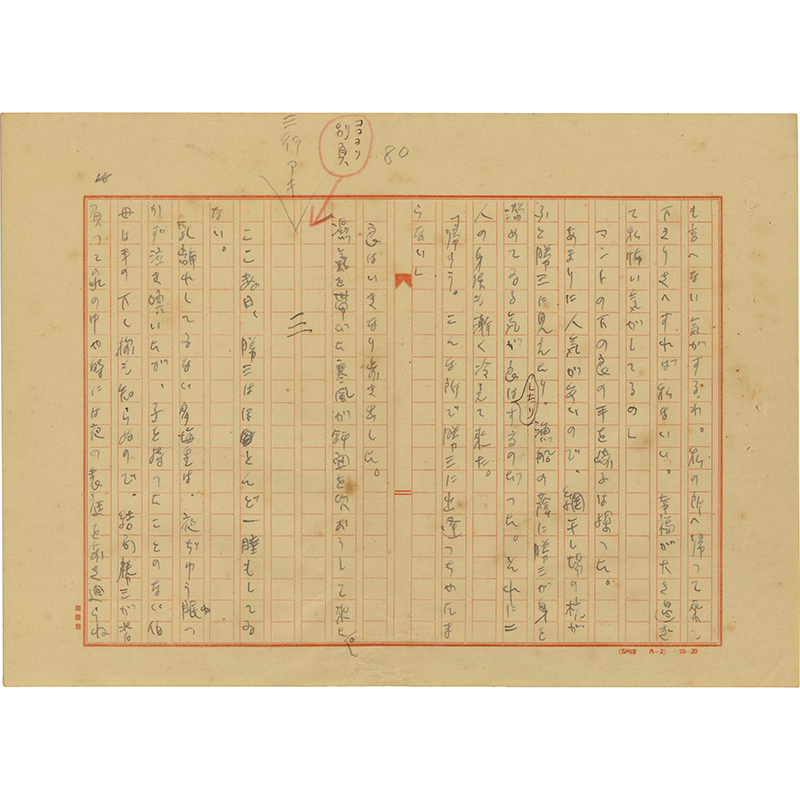 80
ココヨリ
別頁
三行アキ
も言へない気がするわ。私の所へ帰つて来て
下さりさへすれば私はいい。幸福が大き過ぎ
て私怖い気がしてるの」
マントの下の良の手を 子は探つた。
あまりに人気がないので、網干し場の杭が
ふと勝三に見えたり、漁船の蔭に勝三が身を
潜めてゐる気が良はしたりするのだつた。それに二
人の身体も漸く冷えて来た。
「帰らう。こんな所で勝三に出逢つちやたま
らない」
良はいきなり歩き出した。
湿気を帯びた寒風が斜面を吹きおろして来た。
三
ここ数日、勝三はほとんど一睡もしてゐ
ない。
乳離れしてゐない 海生は、夜ぢゆう眠つ
かず泣き喚いたが、子を持つたことのない伯
母は手の下し様も知らぬので、結局勝三が背
負つて家の中や時には夜の表通を歩き廻らね
(SM印 A-2) 10-20